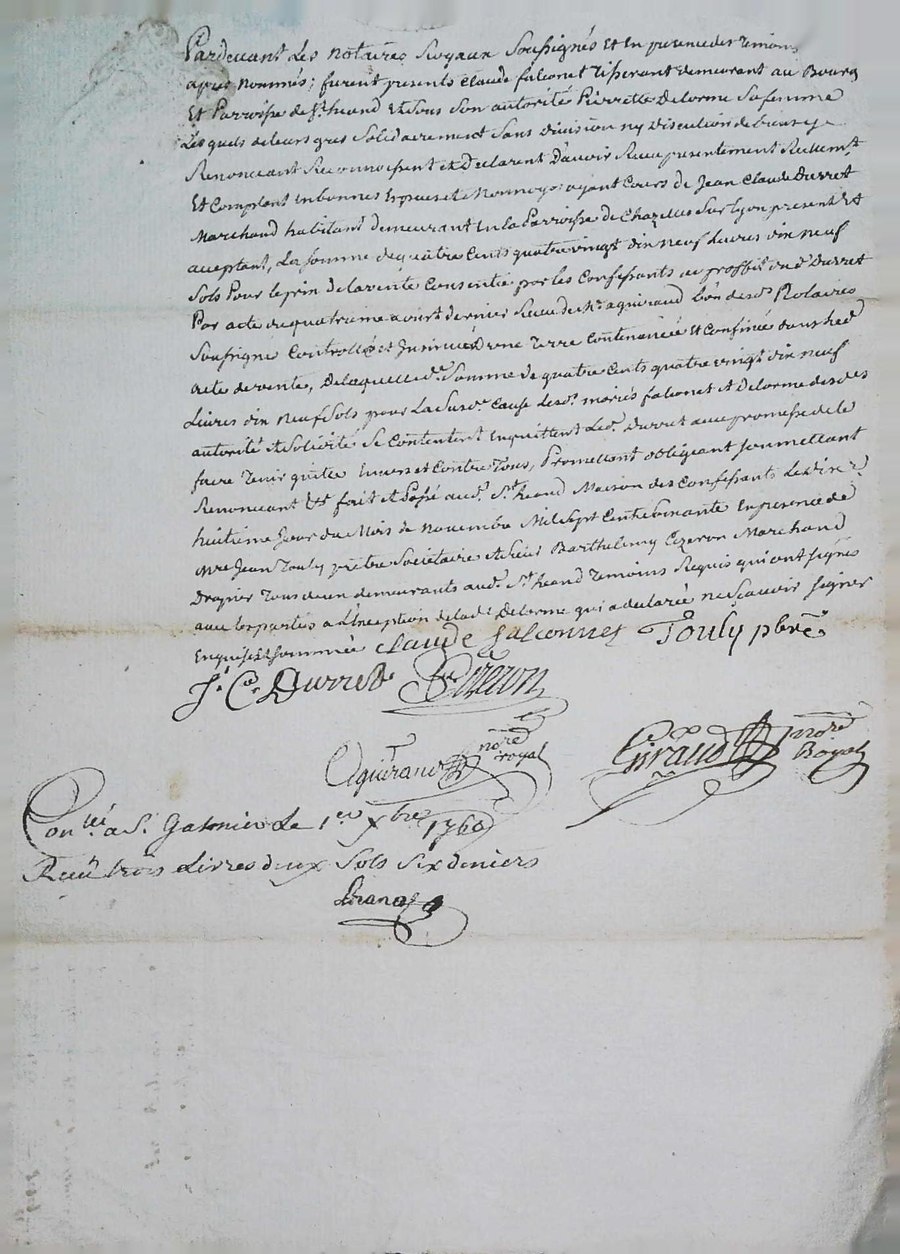 Pardevant Les Notaires Royaux Soussignés Et En presence des Temoins
apres Nommés; furent presents Claude falconet Tisserant demeurant au Bourg
Et Parroisse de St. heand Et Sous Son autorité Pierrette Delorme Sa femme
Lesquels de leurs gres Solidairement Sans Division ny Discution de biens
Renonceant Reconnoissent et Declarent D'avoir Receu presentement Reellemt.
Et Comptant En bonnes Especes et Monnoyes ayant Cours de Jean Claude Durret
Marchand habitant demeurant En la Parroisse de Chazelles Sur Lyon present Et
acceptant, La Somme de quatre Cents quatre vingt dix neuf Livres dix neuf
Sols Pour le prix de la vente Consentie par les Confessants au proffit dud. Durret
Par acte du quatrieme aoust dernier Receu de Me. aguiraud L'un desd. Notaires
Soussigné Controllé et Insinué D'une Terre Contenancée Et Confinée dans led.
acte de vente, De laquelle de. Somme de quatre Cents quatre vingt dix neuf
Livres dix neuf Sols pour La Susde. Cause Lesd. mariés falconet et Delorme desdes
autorité et Solidité Se Contentent En quittent Led. Durret avec promesse de le
faire Tenir quitte Envers et Contre Tous, Promettant obligeant Soumettant
Renonceant &c fait et Passé aud. St. heand Maison des Confessants Le
huitieme Jour du Mois de Novembre Mil Sept Cent Soixante En presence de
Mre Jean Touly prêtre Societaire et Sieur Barthelemy Ezeron Marchand
Drapier Tous deux demeurants aud. St. heand Temoins Requis qui ont Signés
avec les parties a L'Exception de lade. Delorme qui a declarée ne Scavoir Signer
Enquise Et Sommée Claude falconnet Touly pbre.
J. Ce. Durret Ezeron
Aguiraud nore royal Giraud nore Royal
Conlé a St. Galmier Le 1er Xbre 1760
Receu trois Livres deux Sols Six deniers